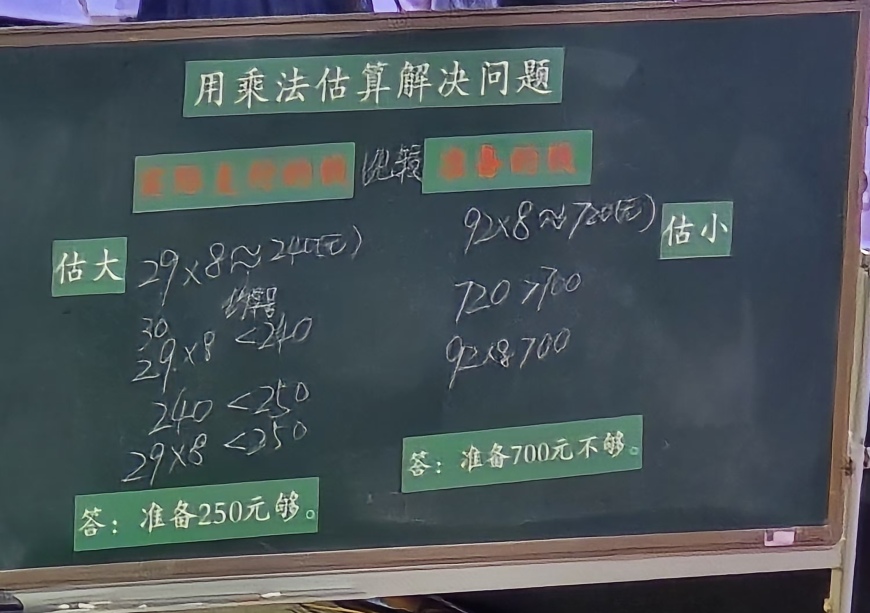 用乘法估算解决问题
比较
估大
29×8≈240(元)
30
29×8 <240
240 <250
29×8 <250
答：准备250元够。
92×8≈720(元)
估小
720 >700
92×8>700
答：准备700元不够。